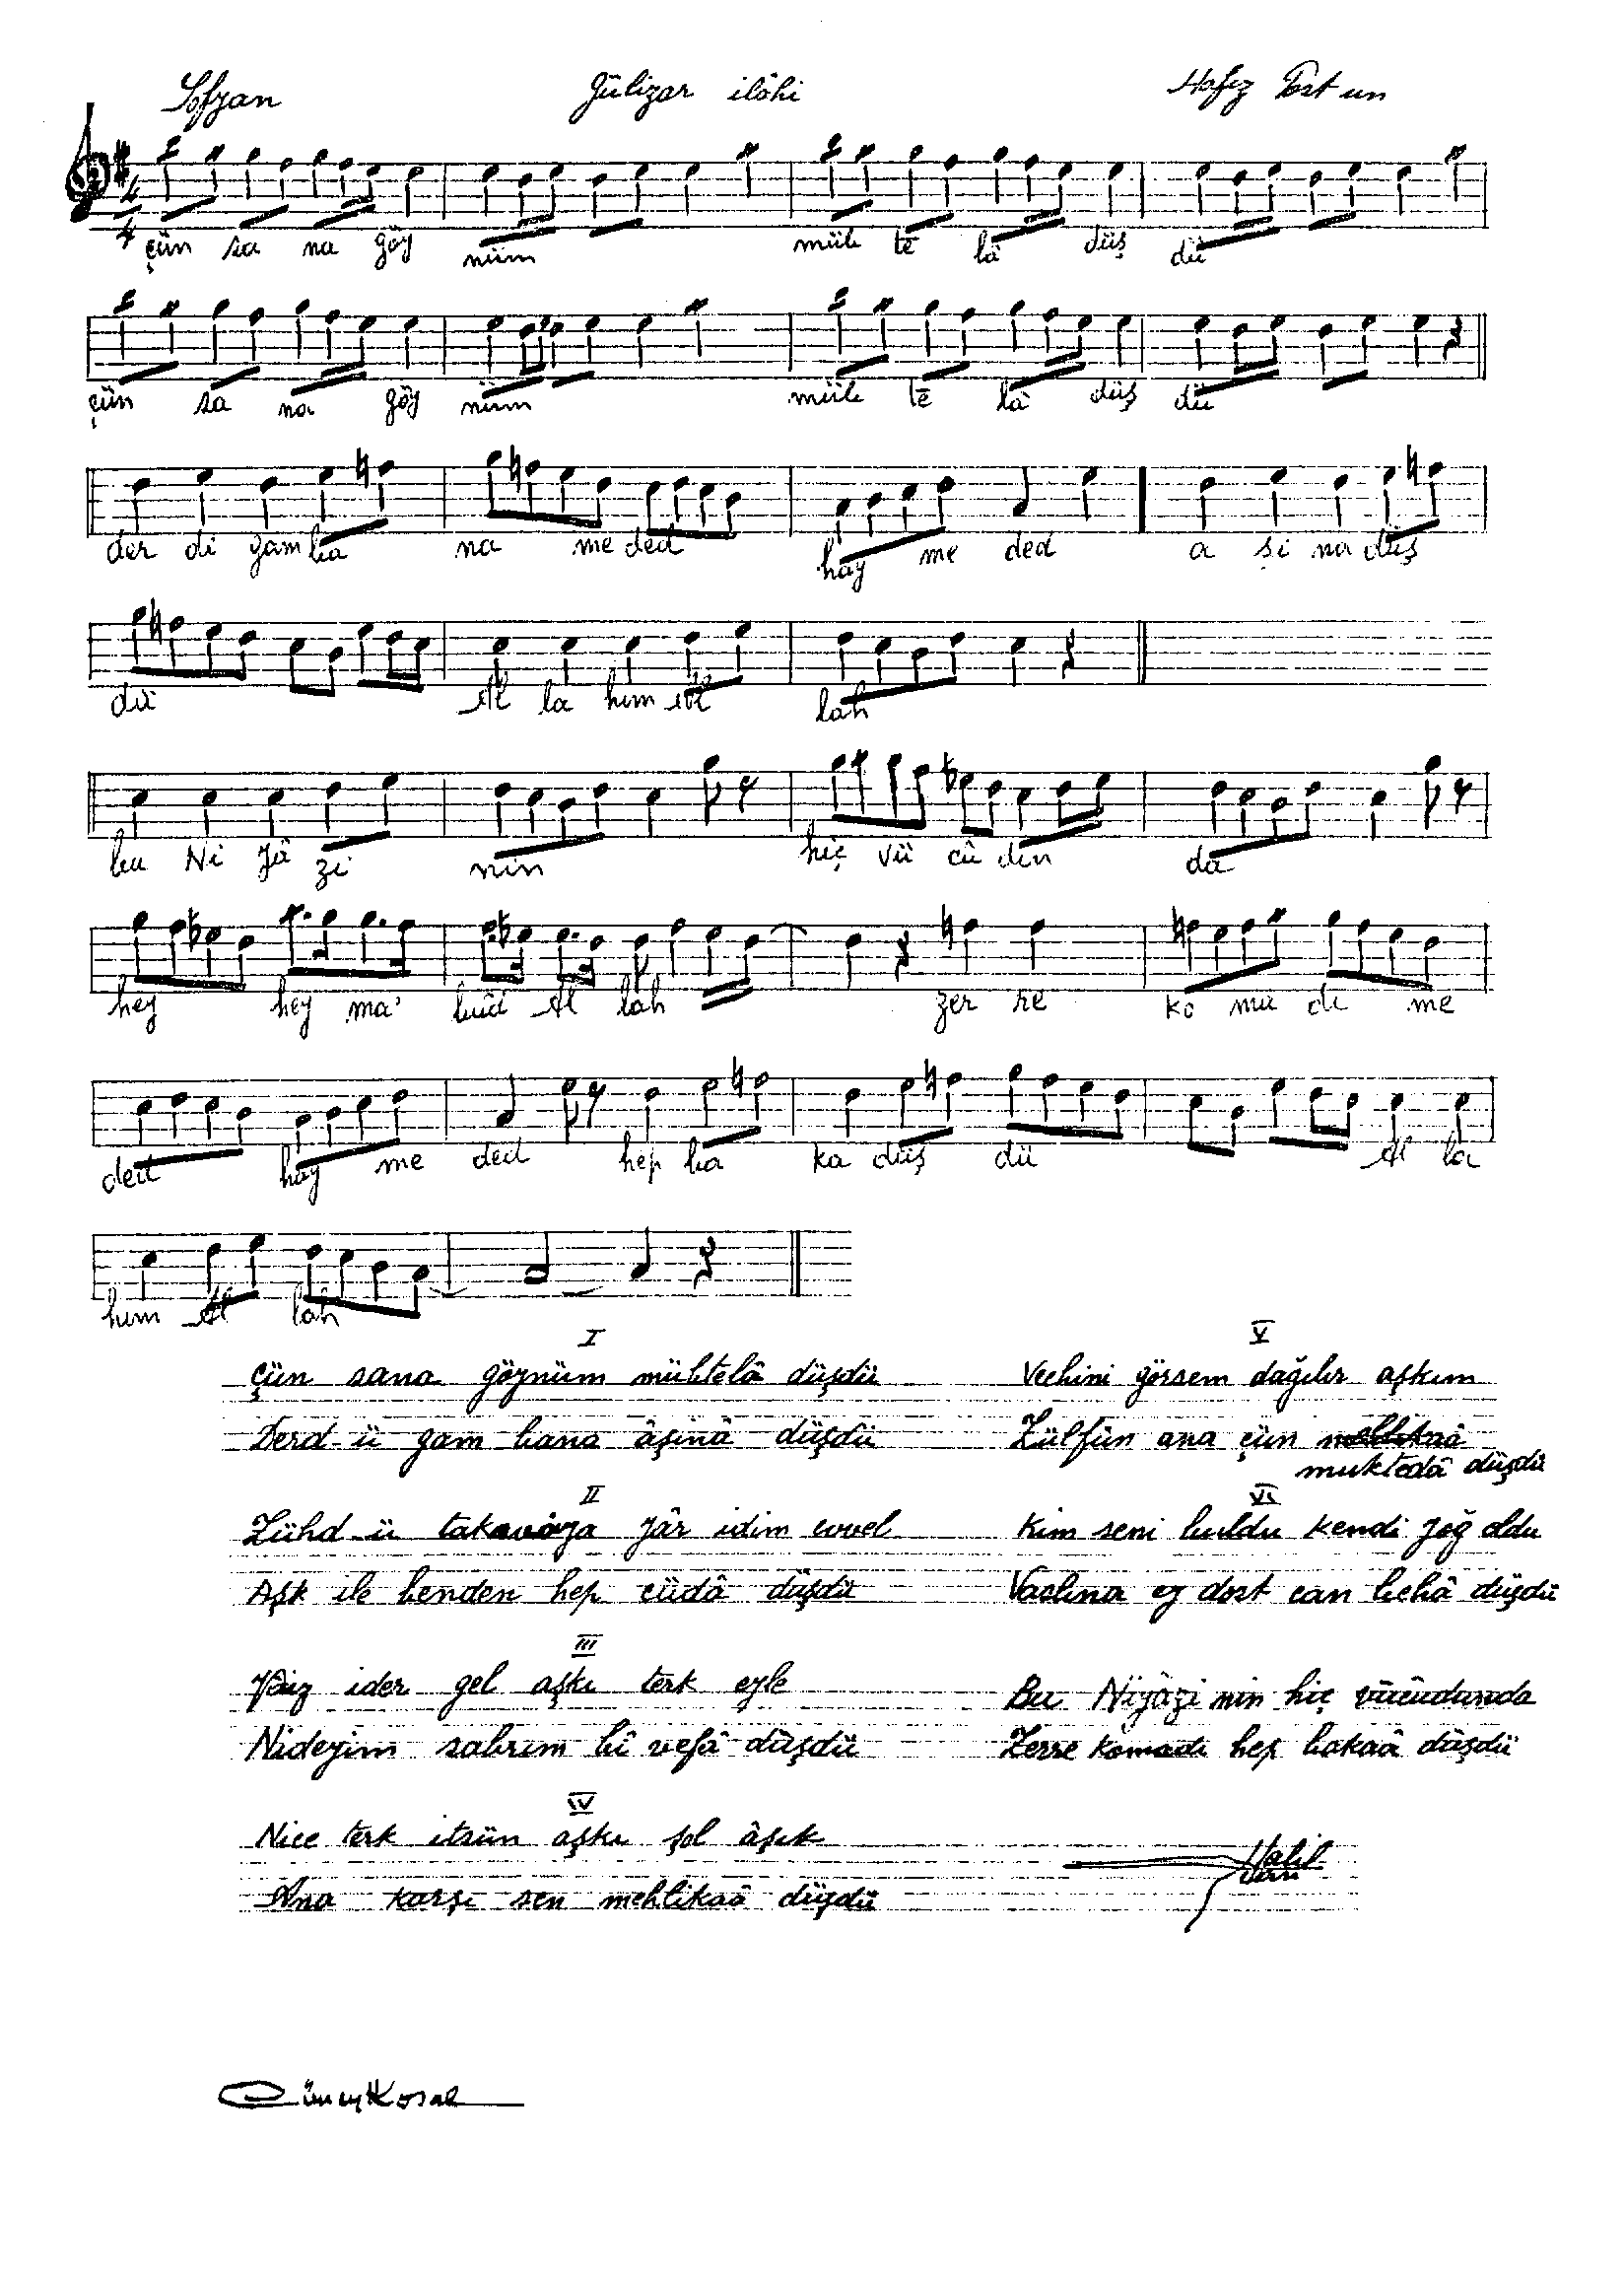 Sofyan Gülizar ilâhi Hafız Post un
4 4
çün sa na göy nüm müb te lâ düş dü
çün sa na göy nüm müb te lâ düş dü
der di gam ba na me ded hay me ded a şi na düş
dü Al la hım Al lah
bu Ni yâ zi nin hiç vü cû dın da
hey hey ma' bud Al lah zer re ko ma dı me
ded hay me ded hep ba ka düş dü Al la
hım Al lah
I
Çün sana göynüm mübtelâ düşdü
Derd-ü gam bana âşinâ düşdü
II
Zühd-ü takavâya yâr idim evvel
Aşk ile benden hep cüdâ düşdü
III
Vâiz ider gel aşkı terk eyle
Nideyim sabrım bî vefâ düşdü
IV
Nice terk itsün aşkı şol âşık
Ana karşı sen mehlikaâ düşdü
V
Vechini görsem dağılır aşkım
Zülfün ana çün mehlikaâ
muktedâ düşdü
VI
Kim seni buldu kendi yoğ oldu
Vaslına ey dost can behâ düşdü
Bu Niyâzi nin hiç vücûdunda
Zerre komadı hep bakaâ düşdü
Halil
Can
Cüneyt Kosal